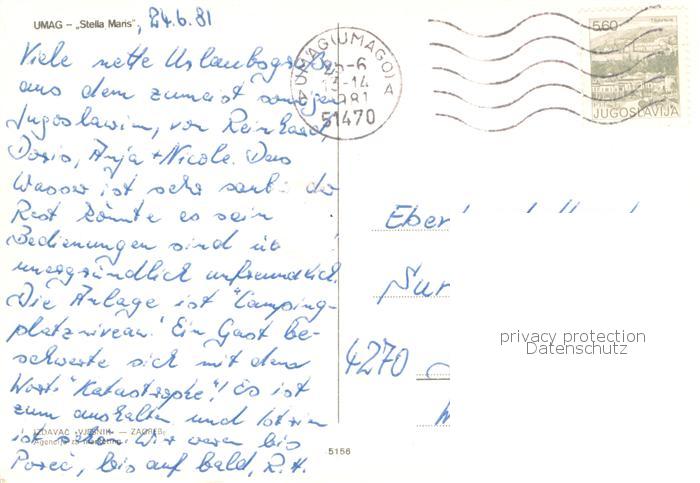 UMAG – „Stella Maris", 24.6.81
Viele nette Urlaubsgrüße
aus dem zumeist sonnigen
Jugoslawien, von Reinhard,
Doris, Anja + Nicole. Das
Wasser ist sehr der
Rest könnte es sein
Bedienungen sind
unergründlich unfreundlich.
Die Anlage ist "Camping-
platzniveau." Ein Gast be-
schwerte sich mit dem
Wort: "Katastrophe"! Es ist
zum aushalten und Istrien
ist schön. Wir waren bis
Poreč, bis auf bald, R. H.
IZDAVAČ „VJESNIK" – ZAGREB
Agencija za marketing
5156
UMAG (UMAGO) A
13-14
51470
5.60
JUGOSLAVIJA
Eber
4270
privacy protection
Datenschutz